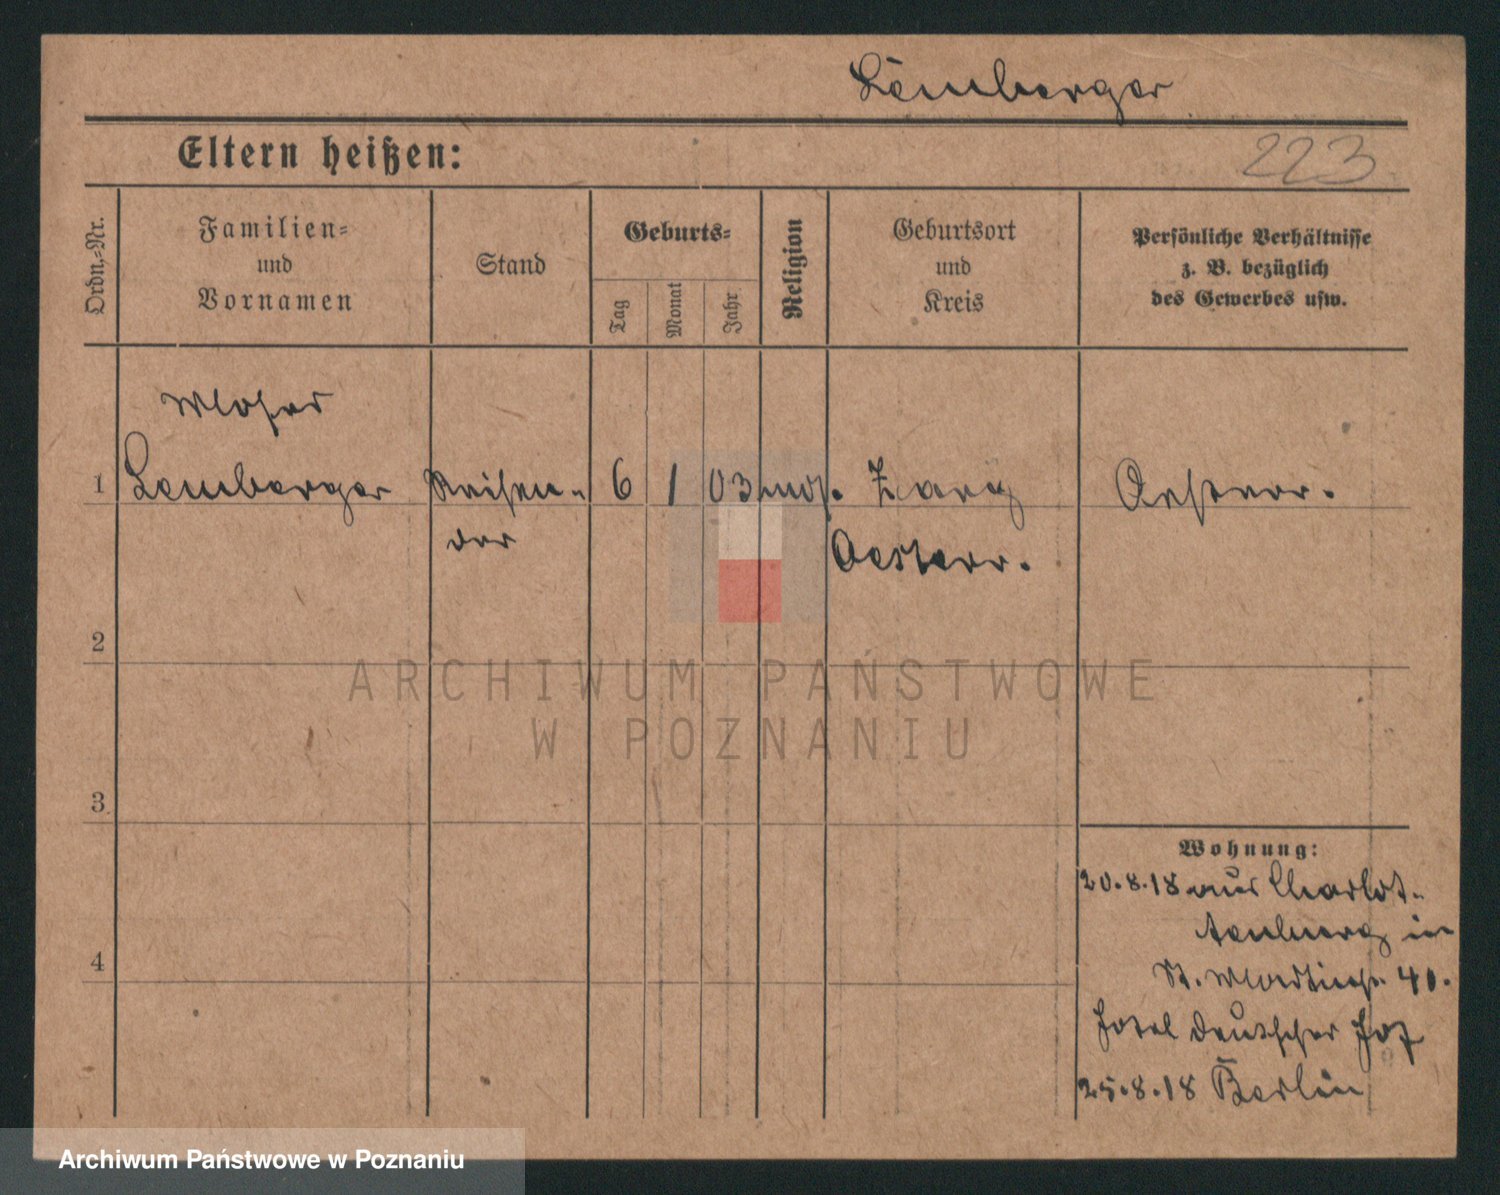 Lemberger
Eltern heißen:
223
Ordn.-Nr.
Familien-
und
Vornamen
Stand
Geburts-
Tag
Monat
Jahr
Religion
Geburtsort
und
Kreis
Persönliche Verhältnisse
z. B. bezüglich
des Gewerbes usw.
Moses
1 Lemberger Reisen- 6 1 03 mos. Oesterr.
der Oesterr.
2
3
4
Wohnung:
20.8.18 aus Charlot-
tenburg in
St. Martinstr. 40.
Hotel Deutscher Hof
25.8.18 Berlin
ARCHIWUM PAŃSTWOWE
W POZNANIU
Archiwum Państwowe w Poznaniu